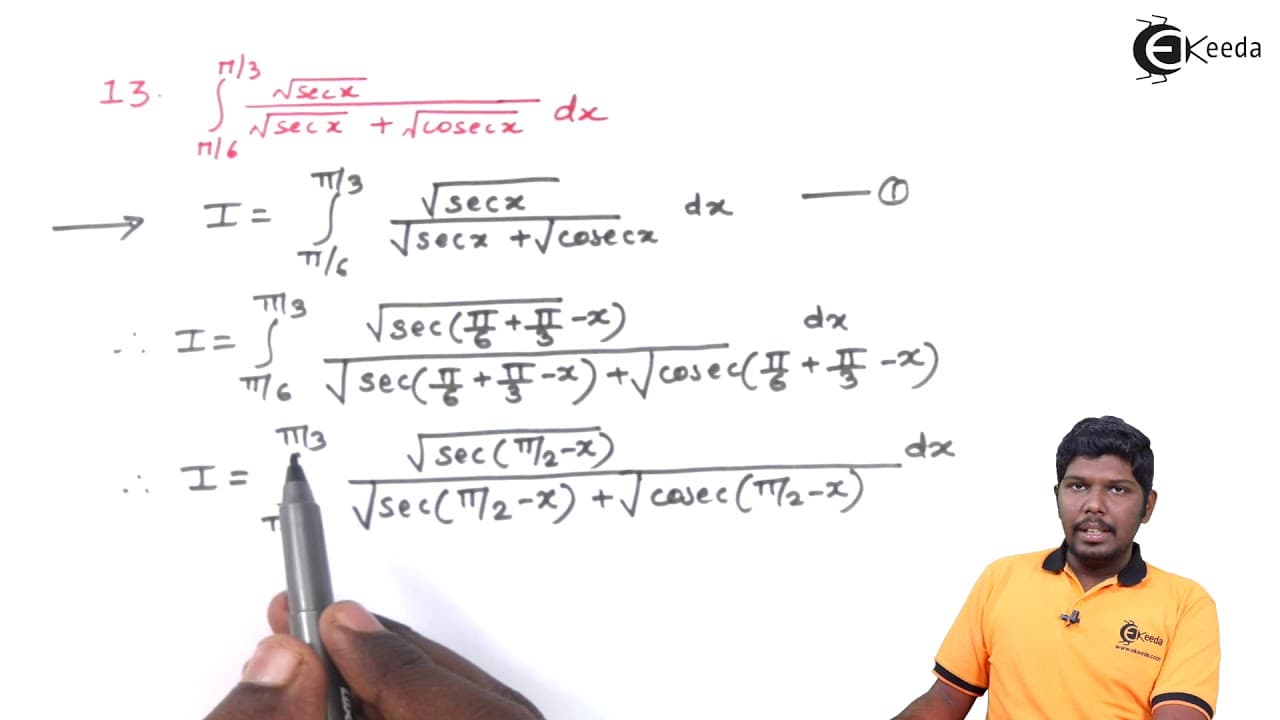 EKeeda
13. ∫_{π/6}^{π/3} √secx / (√secx + √cosecx) dx
→ I = ∫_{π/6}^{π/3} √secx / (√secx + √cosecx) dx —— ①
∴ I = ∫_{π/6}^{π/3} √sec(π/6 + π/3 - x) / (√sec(π/6 + π/3 - x) + √cosec(π/6 + π/3 - x)) dx
∴ I = π/3 √sec(π/2 - x) / (√sec(π/2 - x) + √cosec(π/2 - x)) dx
EKeeda
www.ekeeda.com